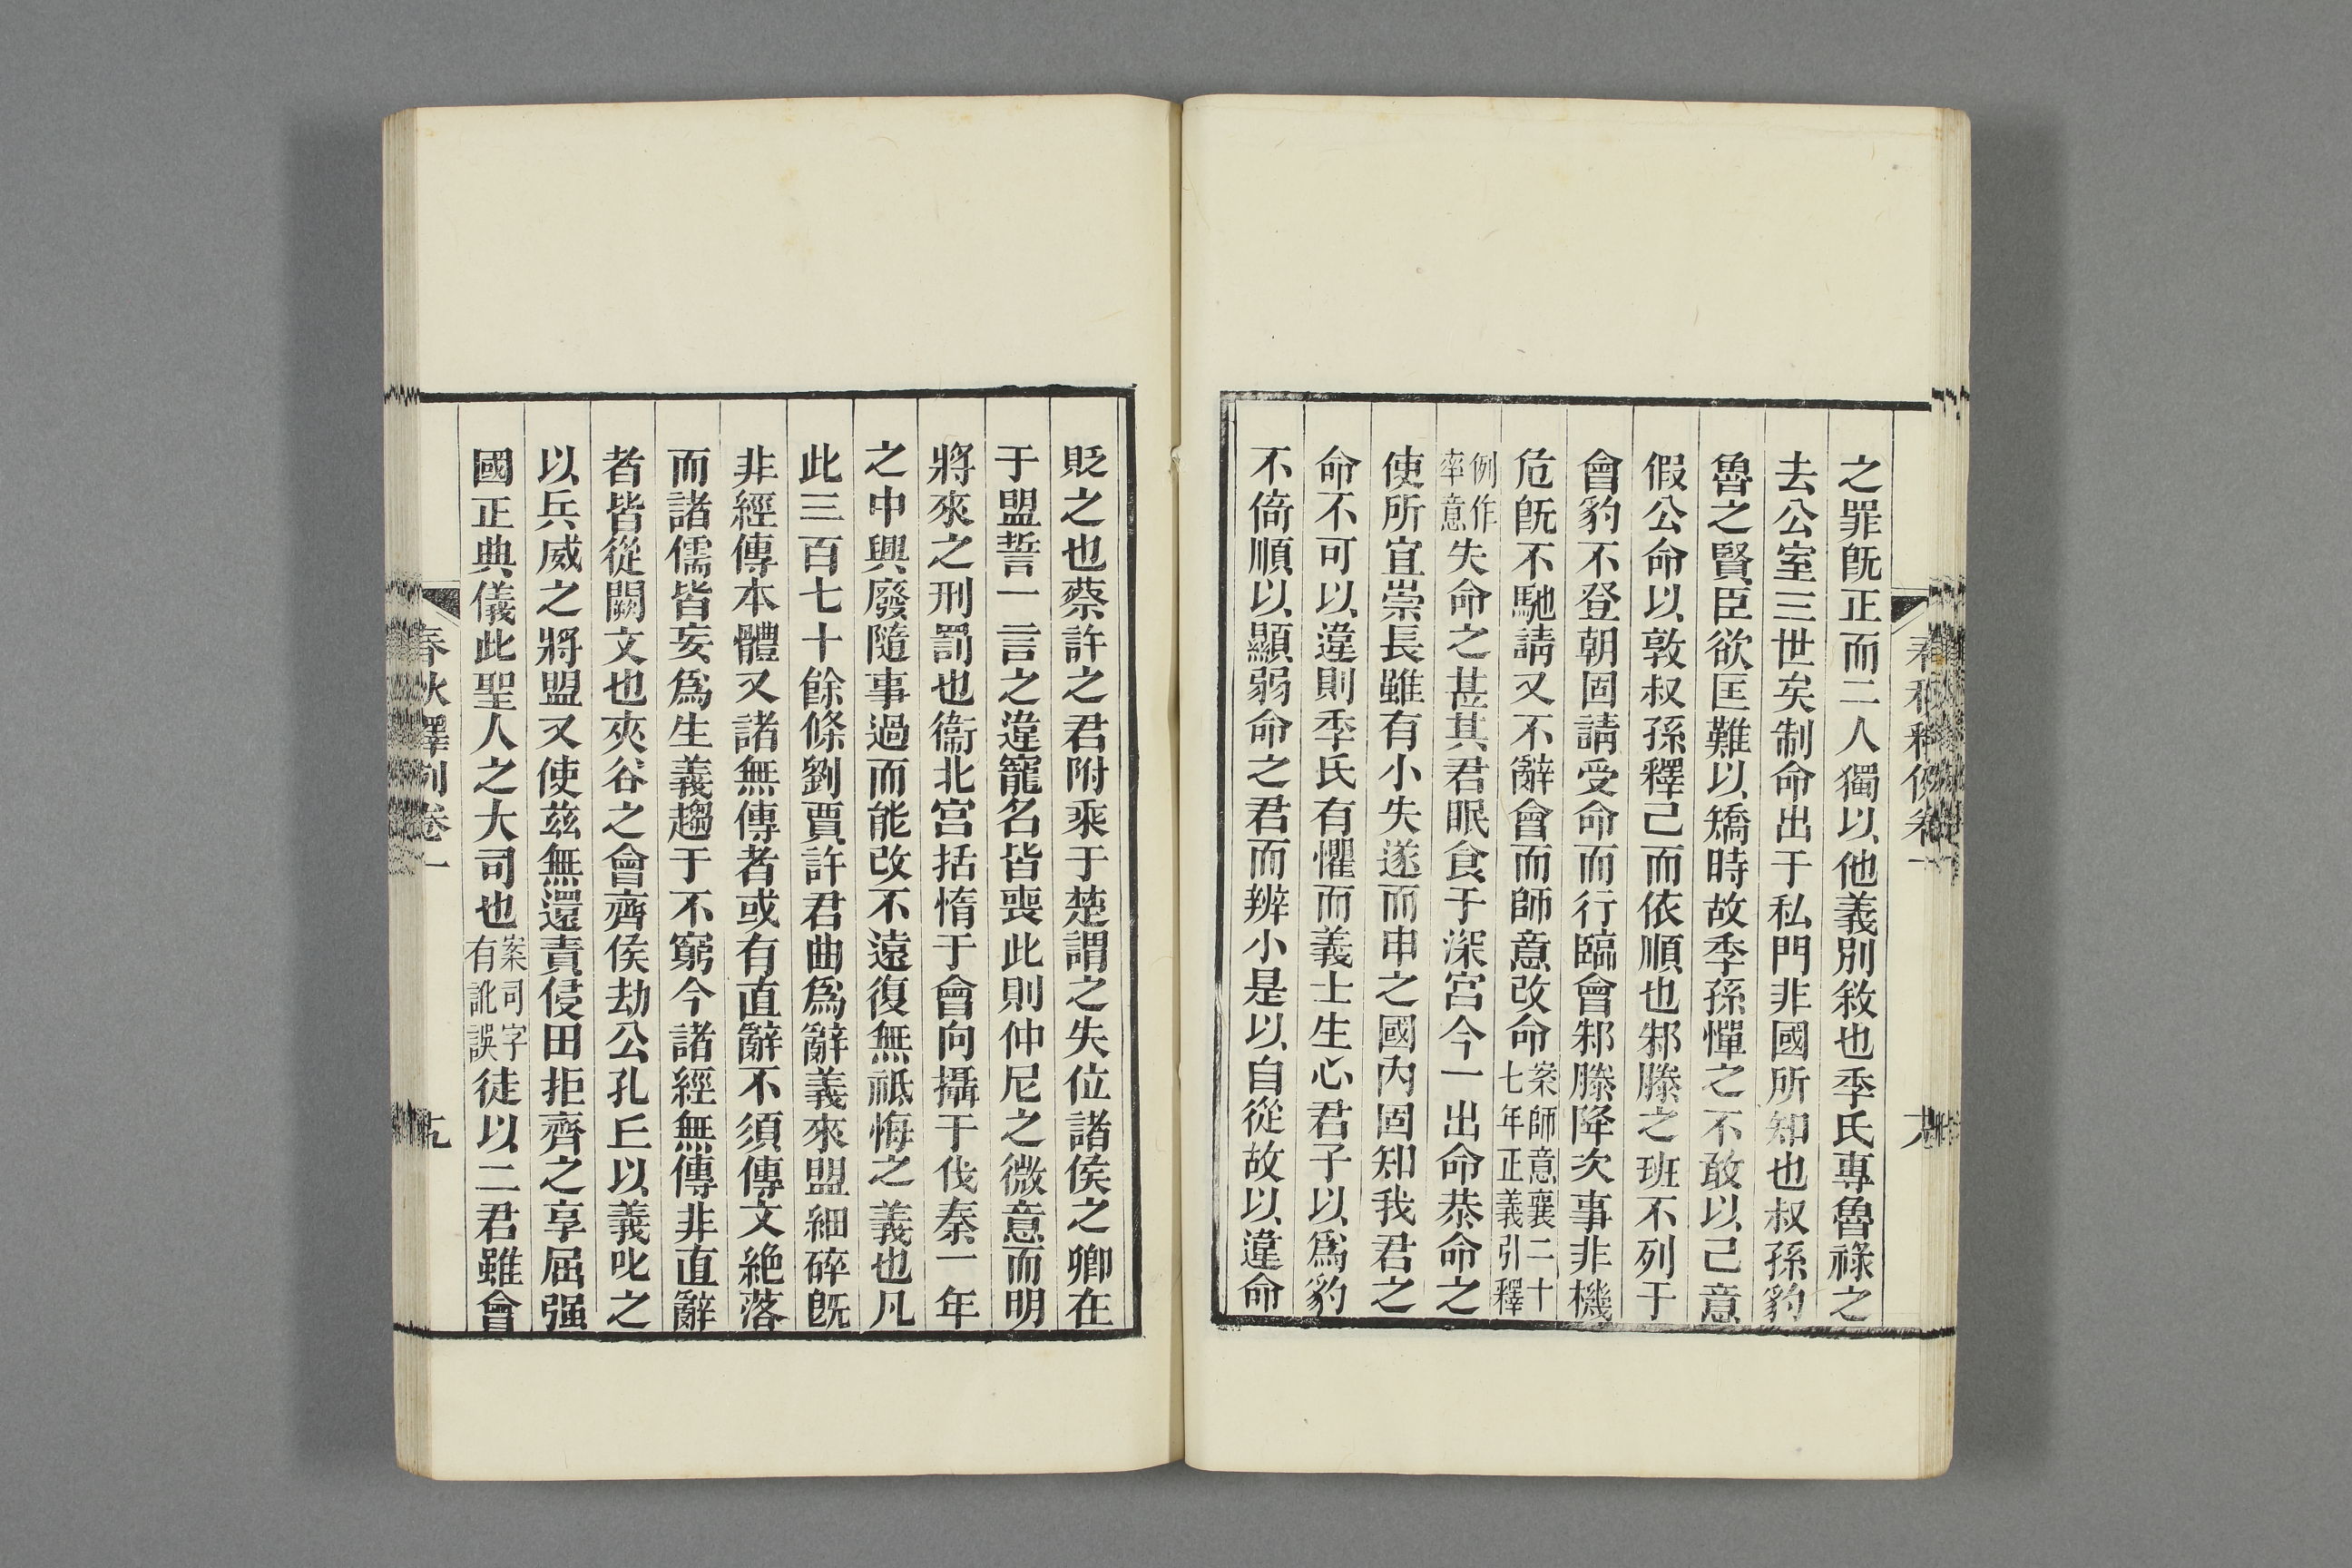 之罪旣正而二人獨以他義別敘也季氏專魯祿之
去公室三世矣制命出于私門非國所知也叔孫豹
魯之賢臣欲匡難以矯時故季孫憚之不敢以己意
假公命以敦叔孫釋己而依順也邾滕之班不列于
會豹不登朝固請受命而行臨會邾滕降次事非機
危旣不馳請又不辭會而師意改命案師意襄二十七年正義引釋
例作率意失命之甚其君眠食于深宮今一出命恭命之
使所宜崇長雖有小失遂而申之國內固知我君之
命不可以違則季氏有懼而義士生心君子以爲豹
不倚順以顯弱命之君而辨小是以自從故以違命
貶之也蔡許之君附乘于楚謂之失位諸侯之卿在
于盟誓一言之違寵名皆喪此則仲尼之微意而明
將來之刑罰也衞北宮括惰于會向攝于伐秦一年
之中興廢隨事過而能改不遠復無祗悔之義也凡
此三百七十餘條劉賈許君曲爲辭義來盟細碎旣
非經傳本體又諸無傳者或有直辭不須傳文絶落
而諸儒皆妄爲生義趨于不窮今諸經無傳非直辭
者皆從闕文也夾谷之會齊侯劫公孔丘以義叱之
以兵威之將盟又使兹無還責侵田拒齊之享屈强
國正典儀此聖人之大司也案司字有訛誤徒以二君雖會
春秋釋例卷一